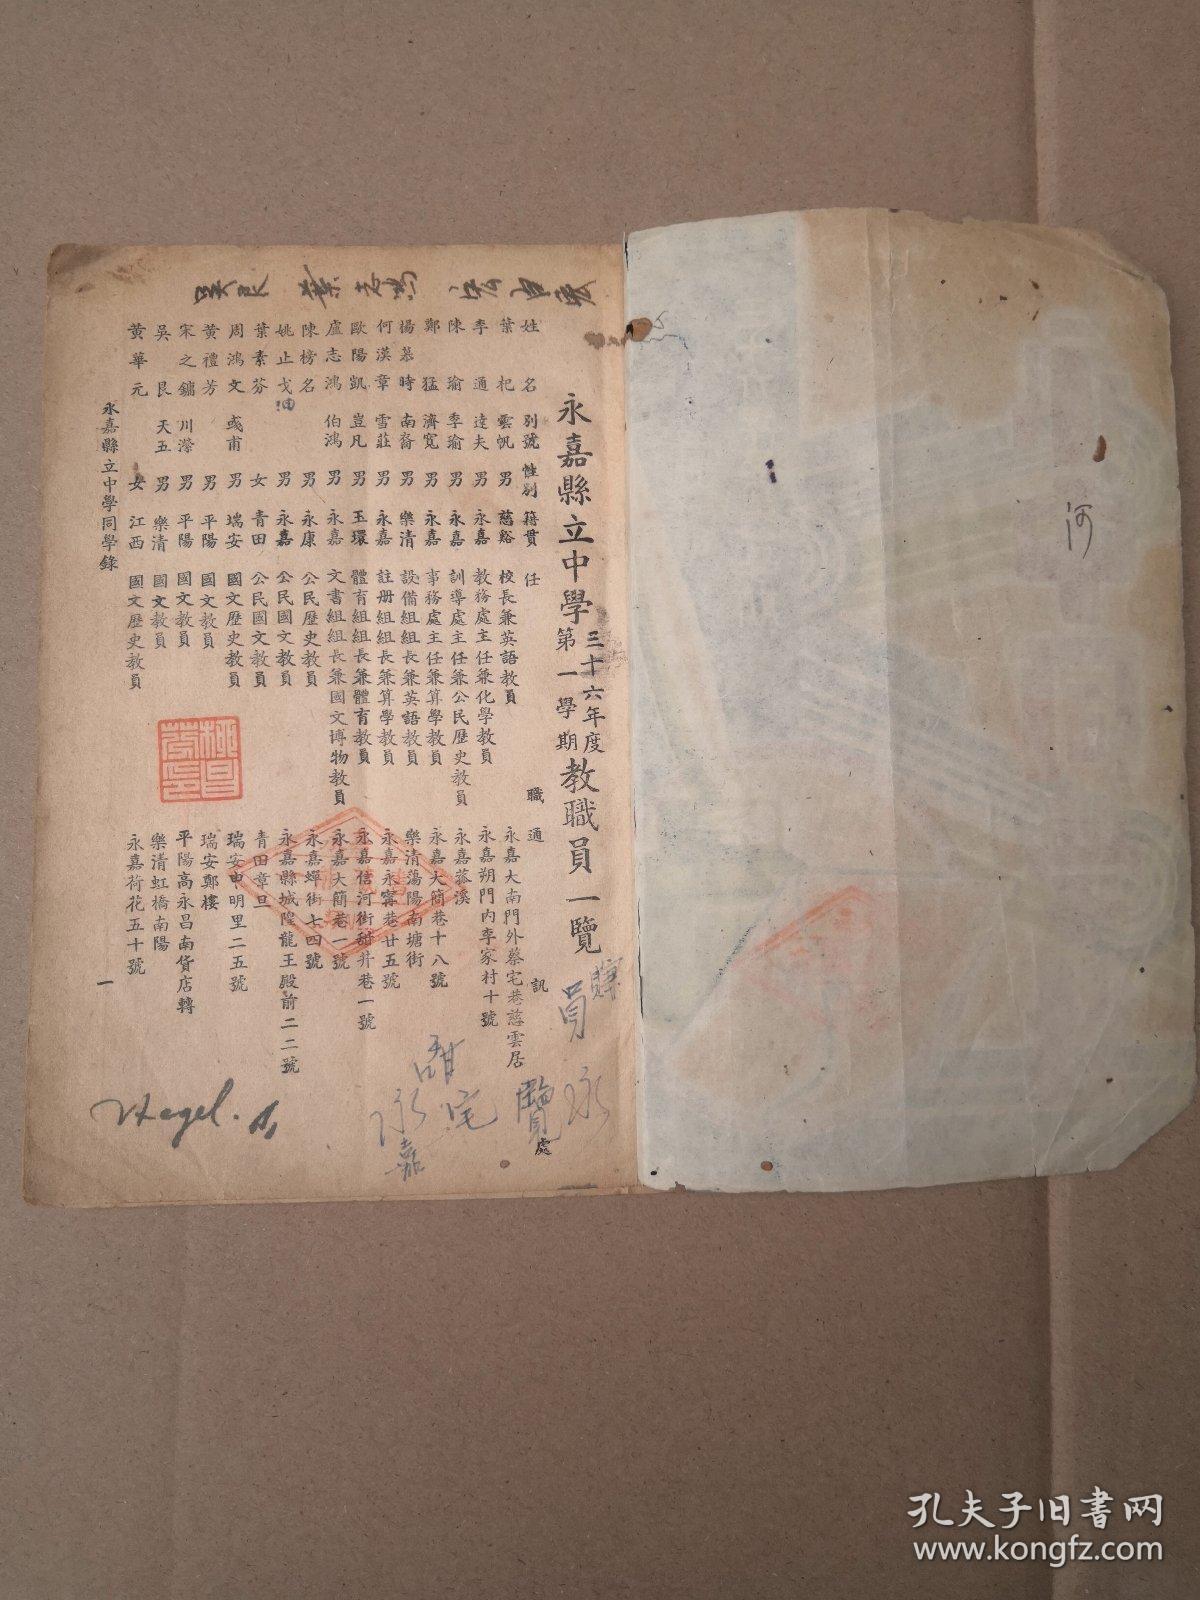 永嘉縣立中學三十六年度第一學期教職員一覽
姓名 別號 性別 籍貫 任職 通訊處
葉杞 雲帆 男 慈谿 校長兼英語教員 永嘉大南門外蔡宅巷慈雲居
李通 達夫 男 永嘉 教務處主任兼化學教員 永嘉朔門內李家村十號
陳瑜 季瑜 男 永嘉 訓導處主任兼公民歷史教員 永嘉菰溪
鄭猛 濟寬 男 永嘉 事務處主任兼算學教員 永嘉大簡巷十八號
楊慕時 南喬 男 樂清 設備組組長兼英語教員 樂清蕩陽南塘街
何漢章 雪莊 男 永嘉 註册組組長兼算學教員 永嘉永寧巷廿五號
歐陽凱 豈凡 男 玉環 體育組組長兼體育教員 永嘉信河街甜井巷一號
盧志鴻 伯鴻 男 永嘉 文書組組長兼國文博物教員 永嘉大簡巷一號
陳榜名 男 永康 公民歷史教員 永嘉蟬街七四號
姚止戈 男 永嘉 公民國文教員 永嘉縣城隍龍王殿前二二號
葉素芬 女 青田 公民國文教員 青田章旦
周鴻文 彧甫 男 瑞安 國文歷史教員 瑞安申明里二五號
黃禮芳 男 平陽 國文教員 瑞安鄭樓
宋之鏞 川瀠 男 平陽 國文教員 平陽高永昌南貨店轉
吳艮 天五 男 樂清 國文教員 樂清虹橋南陽
黃華元 女 江西 國文歷史教員 永嘉荷花五十號
永嘉縣立中學同學錄
一
吳艮
葉志鴻
員
覽
永
宅
永嘉
Hegel.
河
孔夫子旧书网
www.kongfz.com